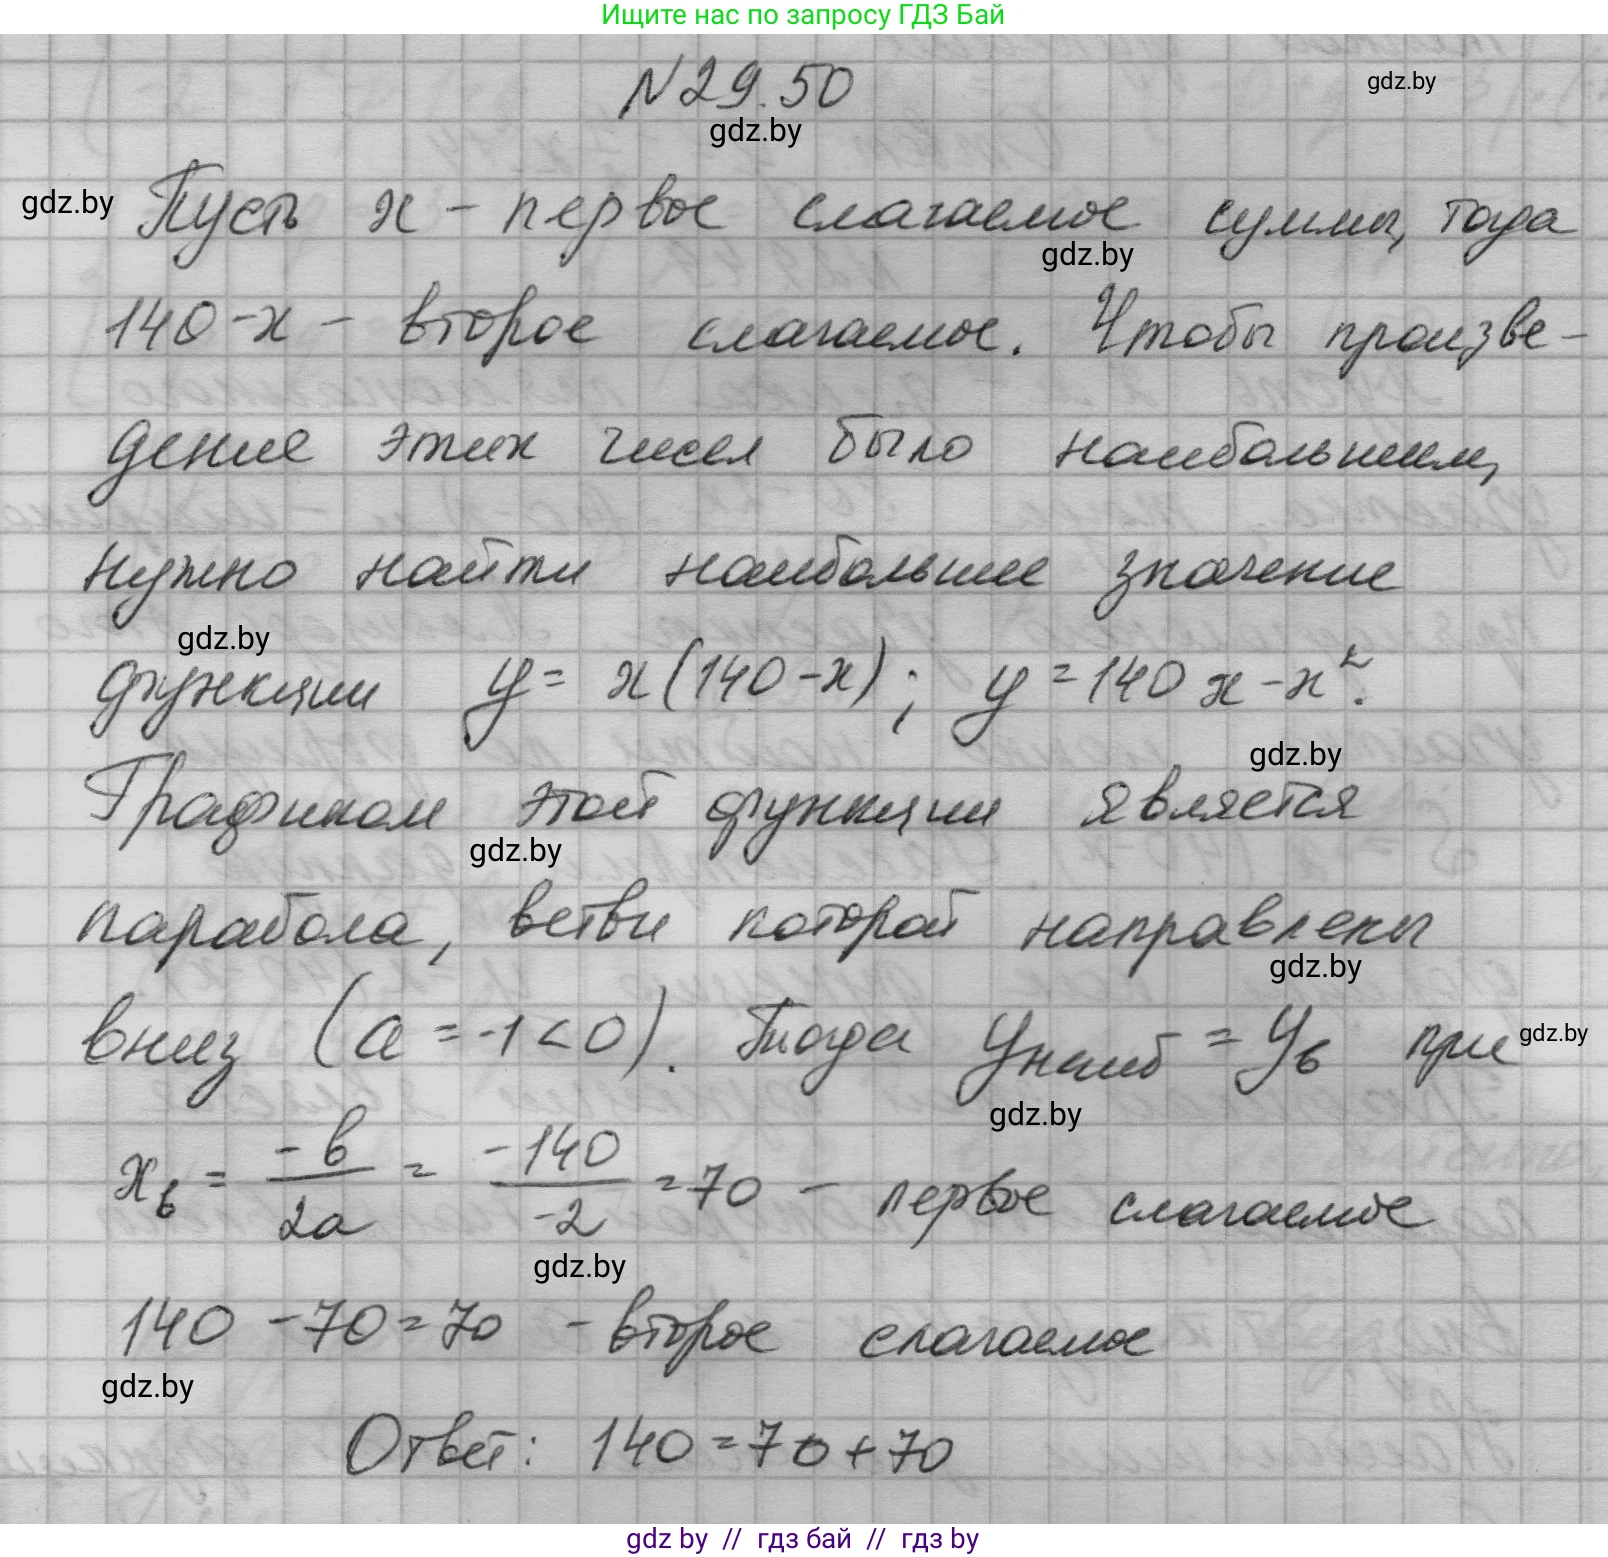 Ищите нас по запросу ГДЗ Бай
N 29.50
gdz.by
gdz.by
gdz.by
Пусть x - первое слагаемое суммы, тогда
gdz.by
140-x - второе слагаемое. Чтобы произве-
дение этих чисел было наибольшим,
нужно найти наибольшее значение
gdz.by
функции y = x(140-x); y = 140x-x².
gdz.by
Графиком этой функции является
gdz.by
парабола, ветви которой направлены
gdz.by
вниз (a = -1 < 0). Тогда yнаиб = yв при
gdz.by
gdz.by
xв = -b/2a = -140/-2 = 70 - первое слагаемое
gdz.by
140 - 70 = 70 - второе слагаемое
gdz.by
Ответ: 140 = 70 + 70
gdz by // гдз бай // гдз by